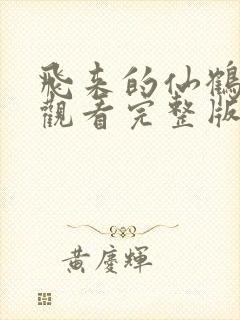 飛来的仙鶴
觀看完整版
黃慶輝